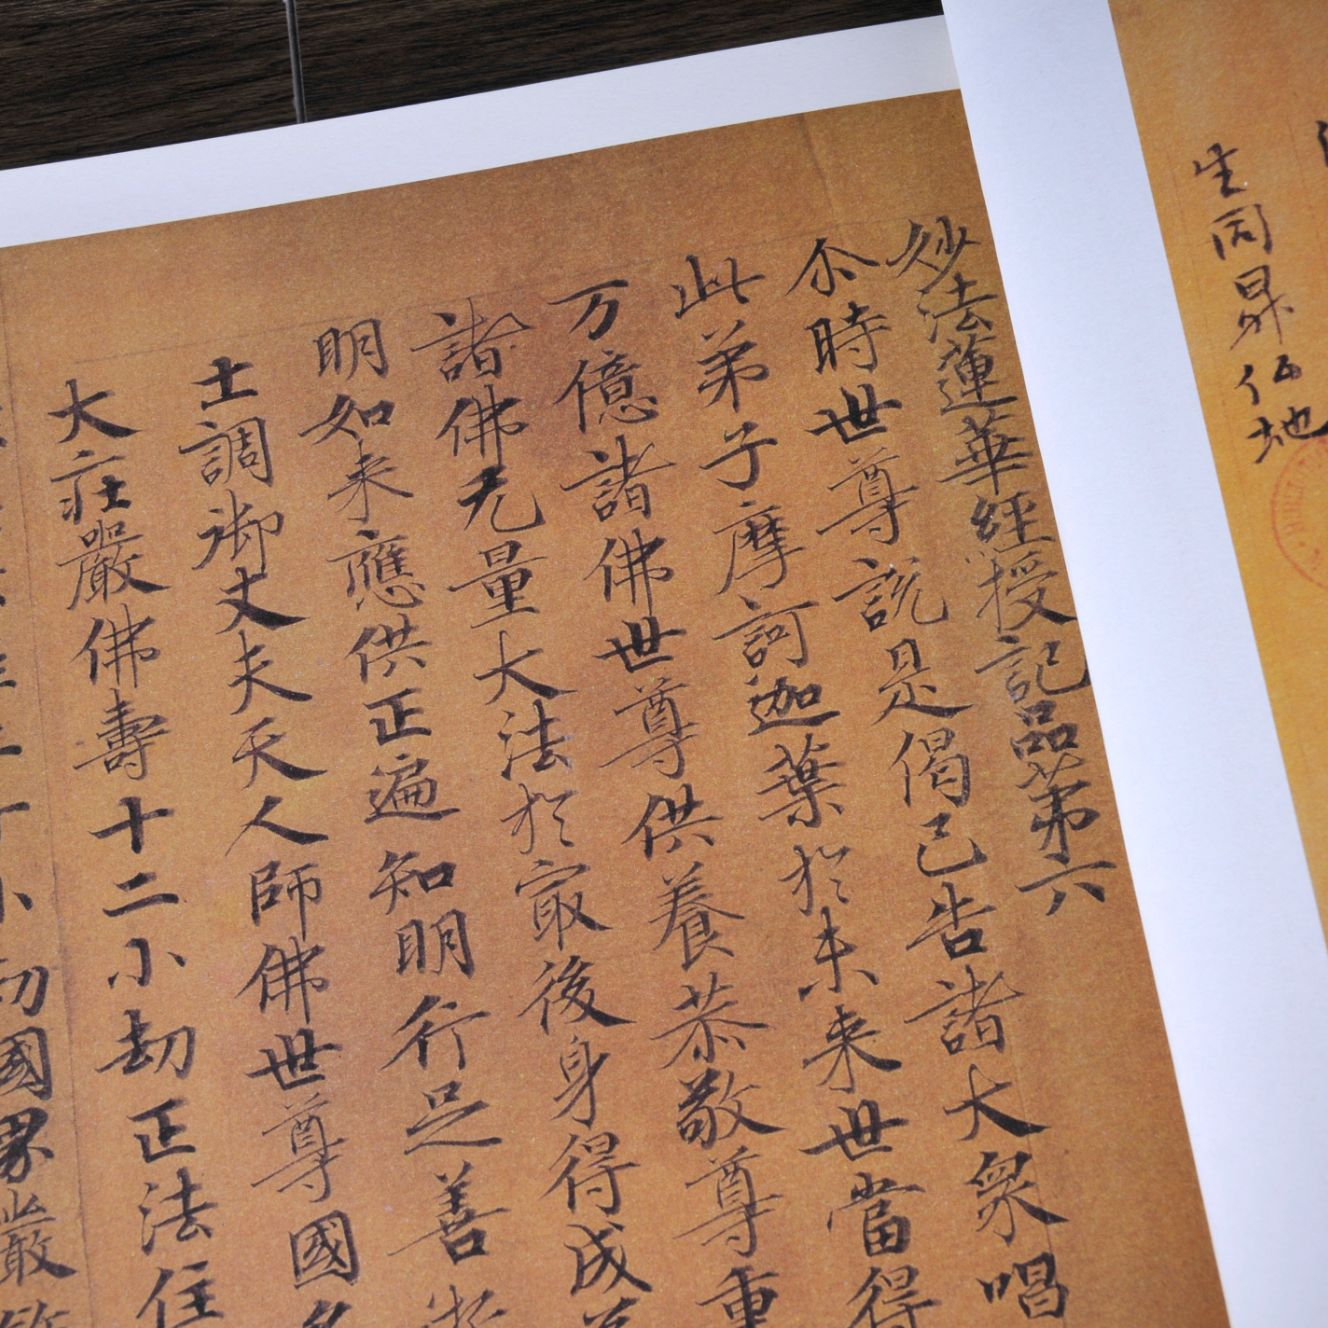 生同昇仏地
妙法蓮華經授記品苐六
尒時世尊說是偈已告諸大衆唱
此弟子摩訶迦葉於未来世當得
万億諸佛世尊供養恭敬尊重
諸佛无量大法於冣後身得成
明如来應供正遍知明行足善
士調御丈夫天人師佛世尊國名
大莊嚴佛壽十二小劫正法住
小劫國界嚴